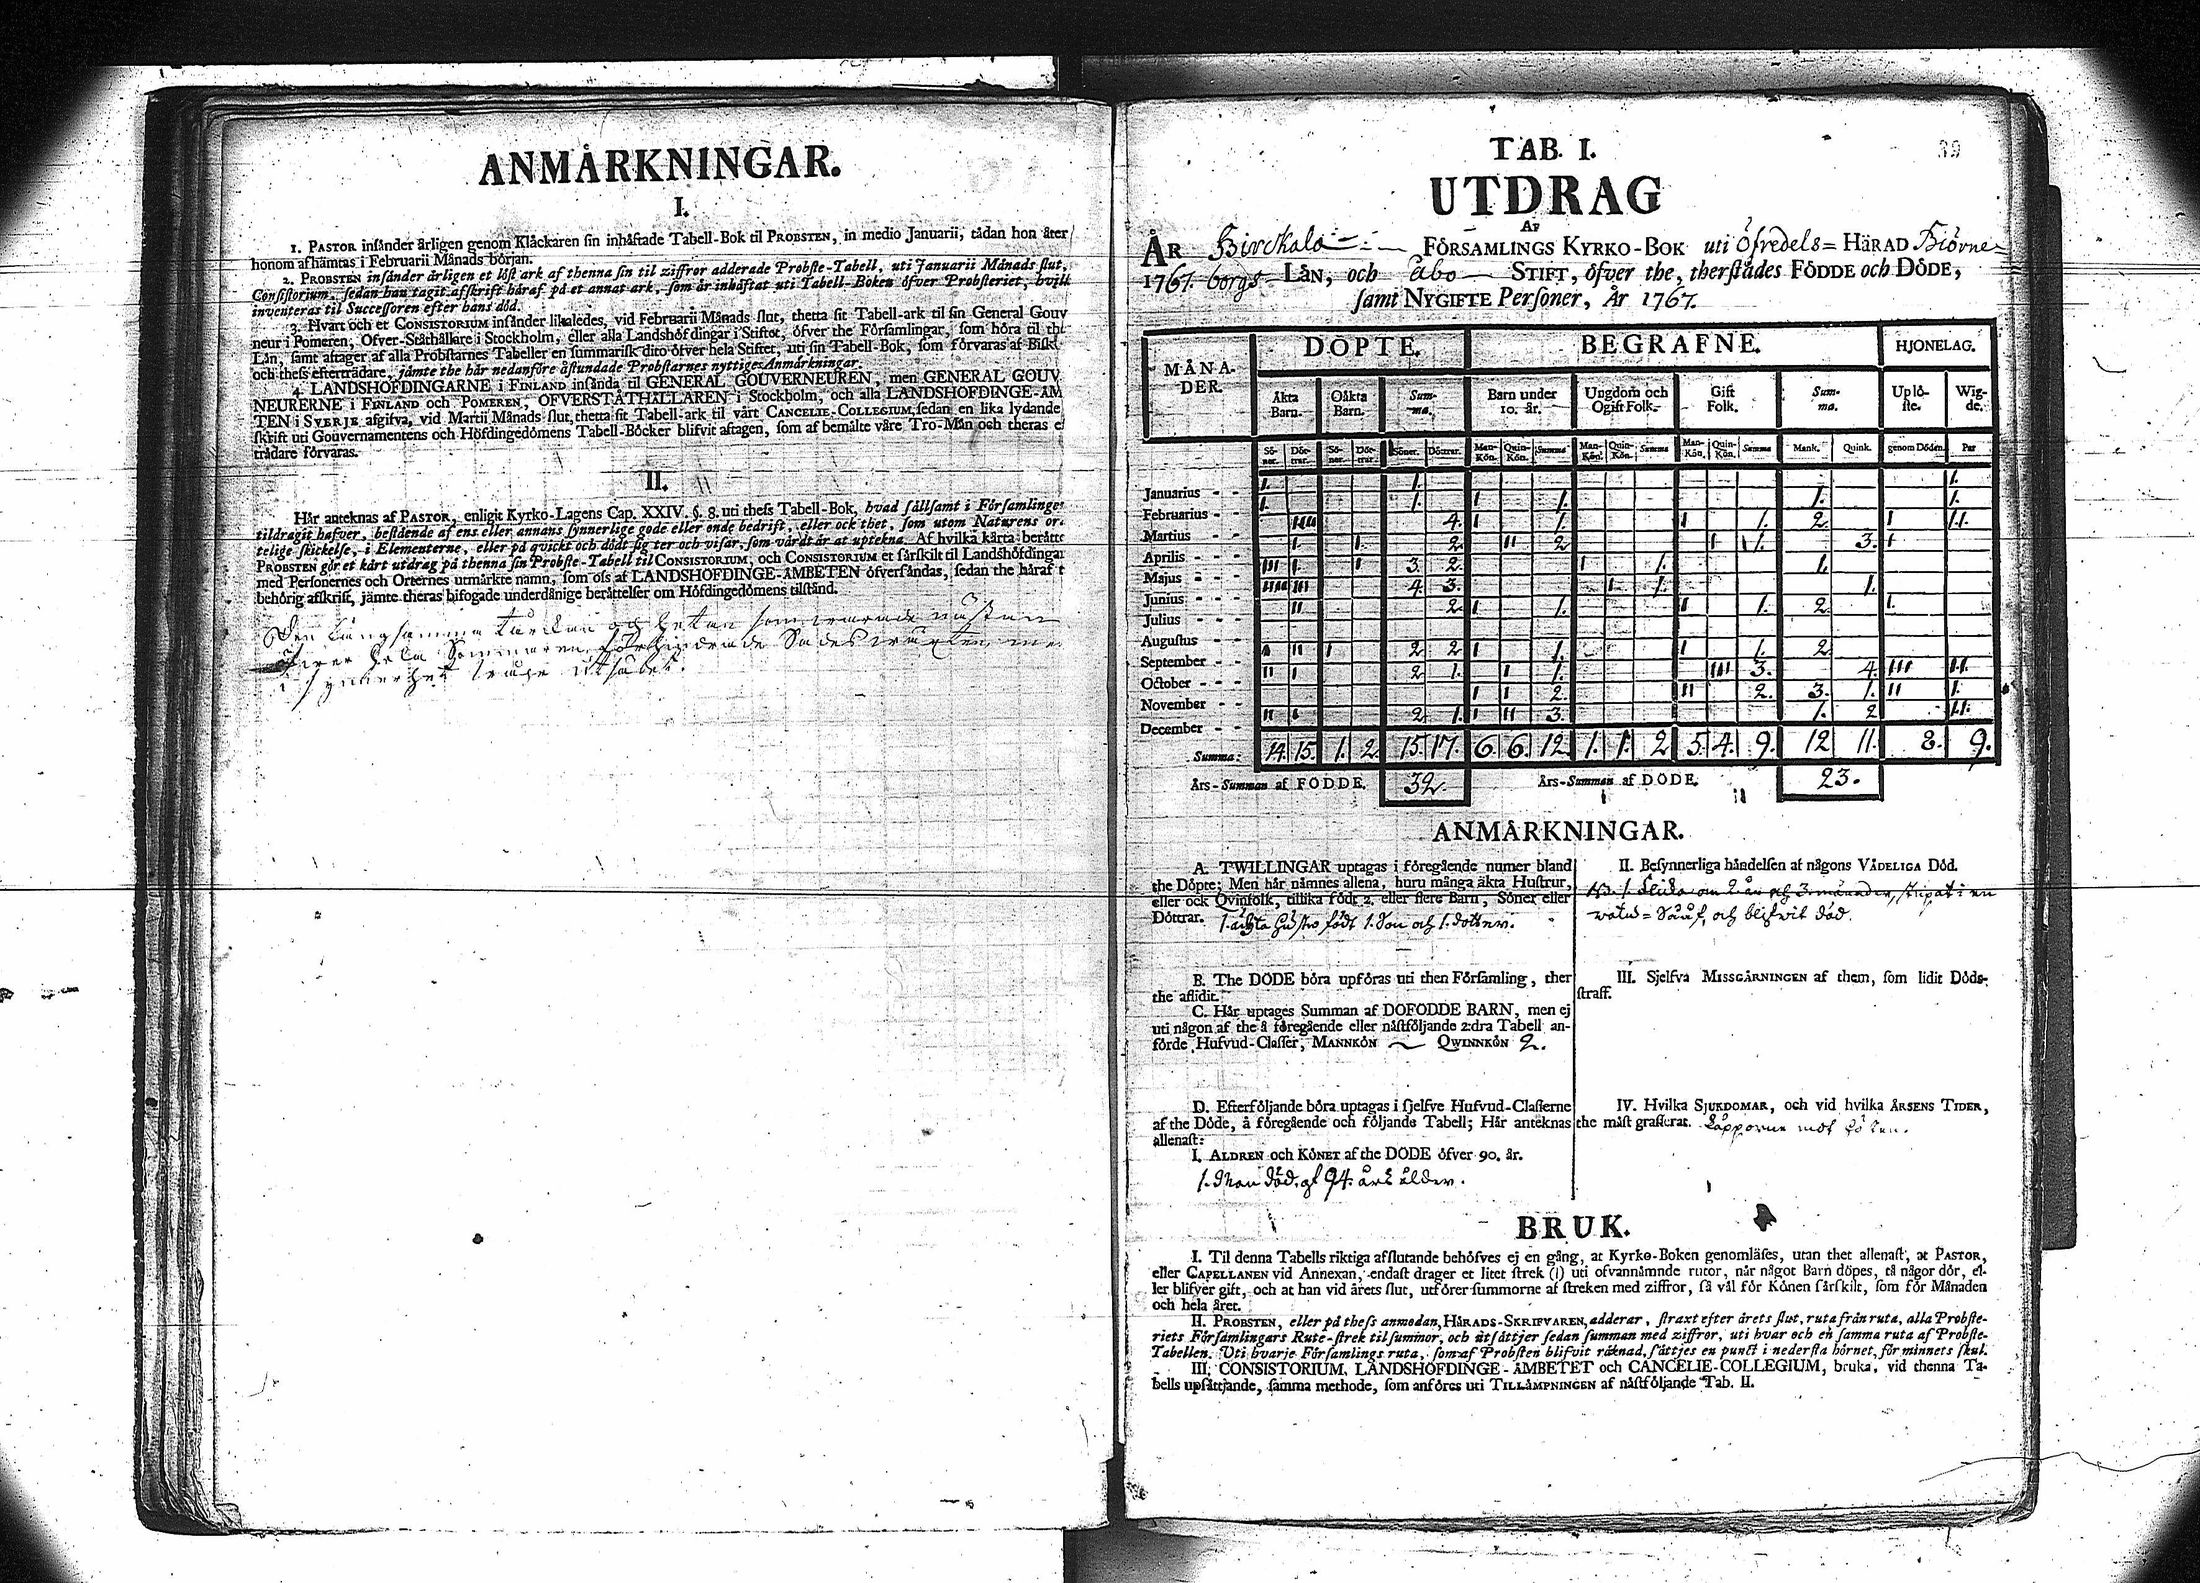 ANMÄRKNINGAR.
I.
1. PASTOR insänder årligen genom Klåckaren sin inhäftade Tabell-Bok til PROBSTEN, in medio Januarii, tådan hon åter
honom afhämtas i Februarii Månads början.
2. PROBSTEN insänder årligen et löst ark af thenna sin til ziffror adderade Probste-Tabell, uti Januarii Månads slut,
Consistorium, sedan han tagit afskrift häraf på et annat ark, som är inhäftat uti Tabell-Boken öfver Probsteriet, hvilk
inventeras til Successoren efter hans död.
3. Hvart och et CONSISTORIUM insänder likaledes, vid Februarii Månads slut, thetta sit Tabell-ark til sin General Gouv
neur i Pomeren, Öfver-Ståthållare i Stockholm, eller alla Landshöfdingar i Stiftot, öfver the Församlingar, som höra til the
Län, samt aftager af alla Probstarnes Tabeller en summarisk dito öfver hela Stiftet, uti sin Tabell-Bok, som förvaras af Bisk
och thess efterträdare, jämte the här nedanföre åstundade Probstarnes nyttiges Anmärkningar.
4. LANDSHÖFDINGARNE i FINLAND insända til GENERAL GOUVERNEUREN, men GENERAL GOUV
NEURERNE i FINLAND och POMEREN, ÖFVERSTÅTHÅLLAREN i Stockholm, och alla LANDSHÖFDINGE-ÄM
TEN i SVERJE afgifva, vid Martii Månads slut, thetta sit Tabell-ark til vårt CANCELIE-COLLEGIUM, sedan en lika lydande
skrift uti Gouvernamentens och Höfdingedömens Tabell-Böcker blifvit aftagen, som af bemälte våre Tro-Män och theras e
trädare förvaras.
II.
Här anteknas af PASTOR, enligit Kyrko-Lagens Cap. XXIV. §. 8. uti thess Tabell-Bok, hvad sällsamt i Församlinge
tildragit hafver, bestående af ens eller annans synnerlige gode eller onde bedrift, eller ock thet, som utom Naturens or
telige skickelse, i Elementerne, eller på qvickt och dödt sig ter och visar, som värdt är at uptekna. Af hvilka kårta berätte
PROBSTEN gör et kårt utdrag på thenna sin Probste-Tabell til CONSISTORIUM, och CONSISTORIUM et särskilt til Landshöfdingar
med Personernes och Orternes utmärkte namn, som oss af LANDSHÖFDINGE-ÄMBETEN öfversändas, sedan the häraf t
behörig afskrift, jämte theras bifogade underdånige berättelser om Höfdingedömens tilstånd.
Den långsamma torckan och hetan som warade nästan
öfwer hela Sommaren förhindrade Sädes wäxten
i synnerhet
39
TAB. I.
UTDRAG
AF
ÅR Birckala FÖRSAMLINGS KYRKO-BOK uti Öfredels= HÄRAD Biörne=
1767. borgs LÄN, och Åbo STIFT, öfver the, therstädes FÖDDE och DÖDE,
samt NYGIFTE Personer, År 1767.
MÅNA-DER. DÖPTE. BEGRAFNE. HJONELAG.
Äkta Barn. Oäkta Barn. Sum-ma. Barn under 10. år. Ungdom och Ogift Folk. Gift Folk. Sum-ma. Uplö-ste. Wig-de.
Sö-ner. Döt-trar. Sö-ner. Döt-trar. Söner. Döttrar. Man-Kön. Quin-Kön. Summa Man-Kön. Quin-Kön. Summa Man-Kön. Quin-Kön. Summa Mank. Quink. genom Döden. Par
Januarius 1. 1. 1.
Februarius 1. 1. 1 1. 1. 1.
Martius IIII 4. 1 1. 1 1. 2. 1 1.1.
Aprilis 1. 1. 2. II 2 1 1. 3. 1
Majus III 1. 1 3. 2. 1 1. 1.
Junius IIII III 4. 3. 1 1. 1.
Julius II 2. 1 1. 1 1. 2. 1.
Augustus
September II II 1 2 2 1 1. 1 1. 2
October II 1 2 1. 1 1. IIII 3. 4. III 1.1.
November 1 1 2. II 2. 3. 1. II 1.
December II 1 2 1. 1 II 3. 1. 2 1.1.
Summa: 14. 15. 1. 2. 15. 17. 6. 6. 12. 1. 1. 2 5. 4. 9. 12 11. 8. 9.
Års-Summan af FÖDDE. 32. Års-Summan af DÖDE. 23.
ANMÄRKNINGAR.
A. TWILLINGAR uptagas i föregående numer bland
the Döpte; Men här nämnes allena, huru många äkta Hustrur,
eller ock Qvinfolk, tillika födt 2. eller flere Barn, Söner eller
Döttrar. 1. ächta Hustro födt 1. Son och 1. dotter.
B. The DÖDE böra upföras uti then Församling, ther
the aflidit.
C. Här uptages Summan af DÖFÖDDE BARN, men ej
uti någon af the å föregående eller nästföljande 2:dra Tabell an-
förde Hufvud-Classer, MANNKÖN — QWINNKÖN 2.
D. Efterföljande böra uptagas i sjelfve Hufvud-Classerne
af the Döde, å föregående och följande Tabell; Här anteknas
allenast:
I. ÅLDREN och KÖNET af the DÖDE öfver 90. år.
1. Man död, af 94. års ålder.
II. Besynnerliga händelsen af någons VÅDELIGA Död.
No. 1. Flicka om 2 år och 3 månader, stupat i en
watu= Så och blifwit död.
III. Sjelfva MISSGÄRNINGEN af them, som lidit Döds-
straff.
IV. Hvilka SJUKDOMAR, och vid hvilka ÅRSENS TIDER,
the mäst grasserat. Kåpporne mot hösten.
BRUK.
I. Til denna Tabells riktiga afslutande behöfves ej en gång, at Kyrko-Boken genomläses, utan thet allenast, at PASTOR,
eller CAPELLANEN vid Annexan, endast drager et litet strek (I) uti ofvannämnde rutor, når något Barn döpes, tå någor dör, el-
ler blifver gift, och at han vid årets slut, utförer summorne af streken med ziffror, så väl för Könen särskilt, som för Månaden
och hela året.
II. PROBSTEN, eller på thess anmodan, HÄRADS-SKRIFVAREN, adderar, straxt efter årets slut, ruta från ruta, alla Probste-
riets Församlingars Rute-strek til summor, och utsättjer sedan summan med ziffror, uti hvar och en samma ruta af Probste-
Tabellen. Uti hvarje Församlings ruta, som af Probsten blifvit räknad, sättjes en punct i nedersta hörnet, för minnets skul.
III. CONSISTORIUM, LANDSHÖFDINGE-ÄMBETET och CANCELIE-COLLEGIUM, bruka, vid thenna Ta-
bells upsättjande, samma methode, som anföres uti TILLÄMPNINGEN af nästföljande Tab. II.